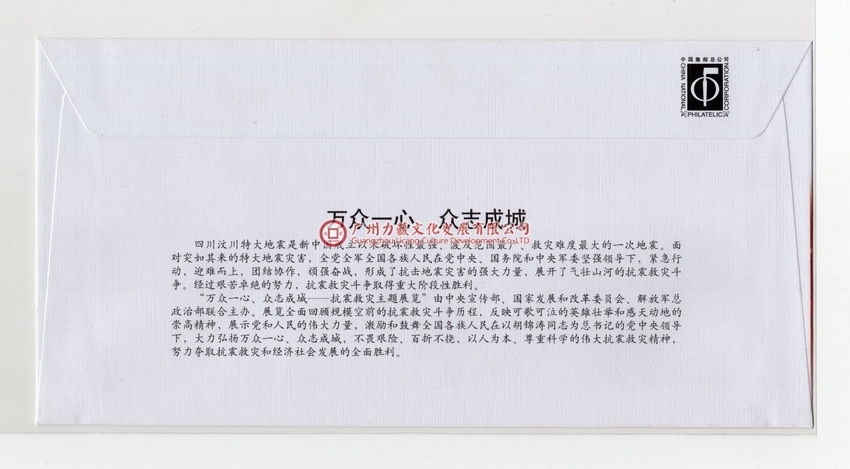 中国集邮总公司
CHINA NATIONAL
PHILATELIC
CORPORATION
万众一心、众志成城
广州力藏文化发展有限公司
Guangzhou Licang Culture Development Co.,LTD
四川汶川特大地震是新中国成立以来破坏性最强、波及范围最广、救灾难度最大的一次地震。面
对突如其来的特大地震灾害，全党全军全国各族人民在党中央、国务院和中央军委坚强领导下，紧急行
动、迎难而上，团结协作、顽强奋战，形成了抗击地震灾害的强大力量，展开了气壮山河的抗震救灾斗
争。经过艰苦卓绝的努力，抗震救灾斗争取得重大阶段性胜利。
“万众一心、众志成城——抗震救灾主题展览”由中央宣传部、国家发展和改革委员会、解放军总
政治部联合主办。展览全面回顾规模空前的抗震救灾斗争历程，反映可歌可泣的英雄壮举和感天动地的
崇高精神，展示党和人民的伟大力量，激励和鼓舞全国各族人民在以胡锦涛同志为总书记的党中央领导
下，大力弘扬万众一心、众志成城，不畏艰险、百折不挠，以人为本、尊重科学的伟大抗震救灾精神，
努力夺取抗震救灾和经济社会发展的全面胜利。